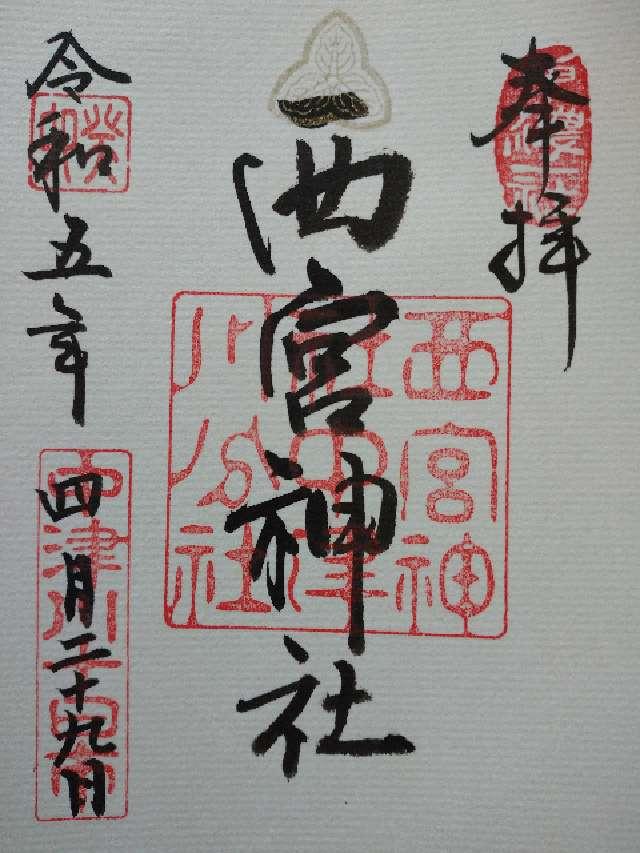 奉拝
西宮神社
西宮神
社中津
川分社
令和五年
四月二十九日